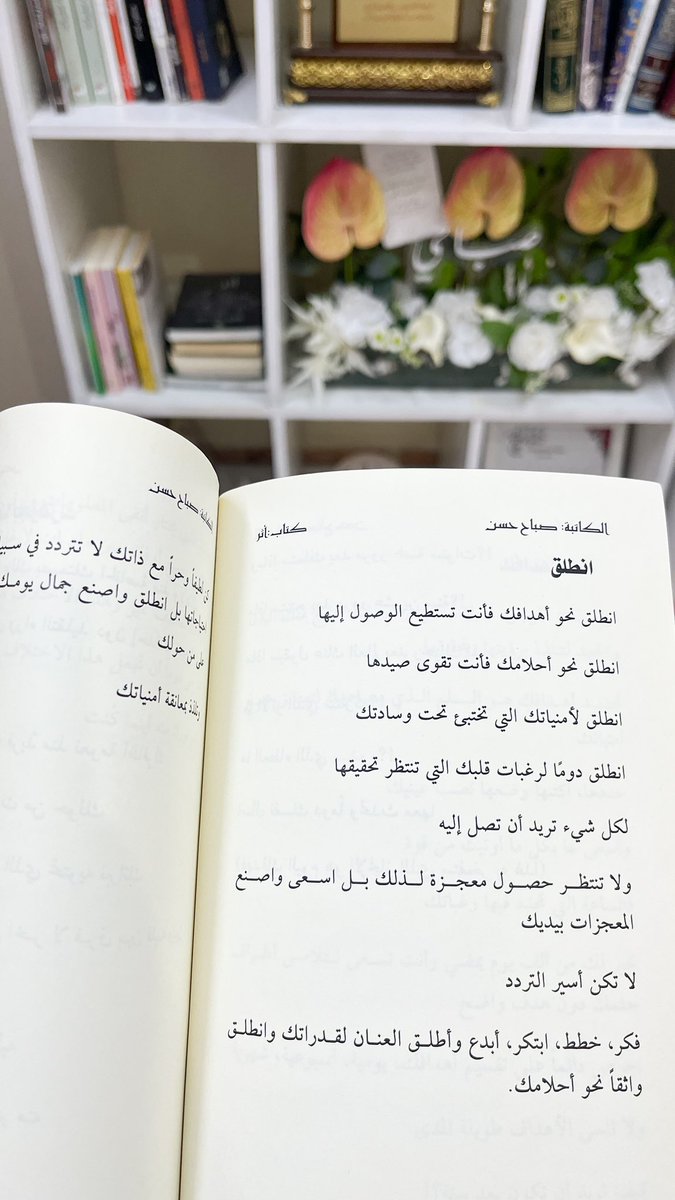 صباح
الكاتبة: صباح حسن
كتاب: أثر
انطلق
انطلق نحو أهدافك فأنت تستطيع الوصول إليها
انطلق نحو أحلامك فأنت تقوى صيدها
انطلق لأمنياتك التي تختبئ تحت وسادتك
انطلق دومًا لرغبات قلبك التي تنتظر تحقيقها
لكل شيء تريد أن تصل إليه
ولا تنتظر حصول معجزة لذلك بل اسعى واصنع
المعجزات بيديك
لا تكن أسير التردد
فكر، خطط، ابتكر، أبدع وأطلق العنان لقدراتك وانطلق
واثقاً نحو أحلامك.
صباح حسن
وحراً مع ذاتك لا تتردد في
بل انطلق واصنع جمال يومك
على من حولك
بمعانقة أمنياتك